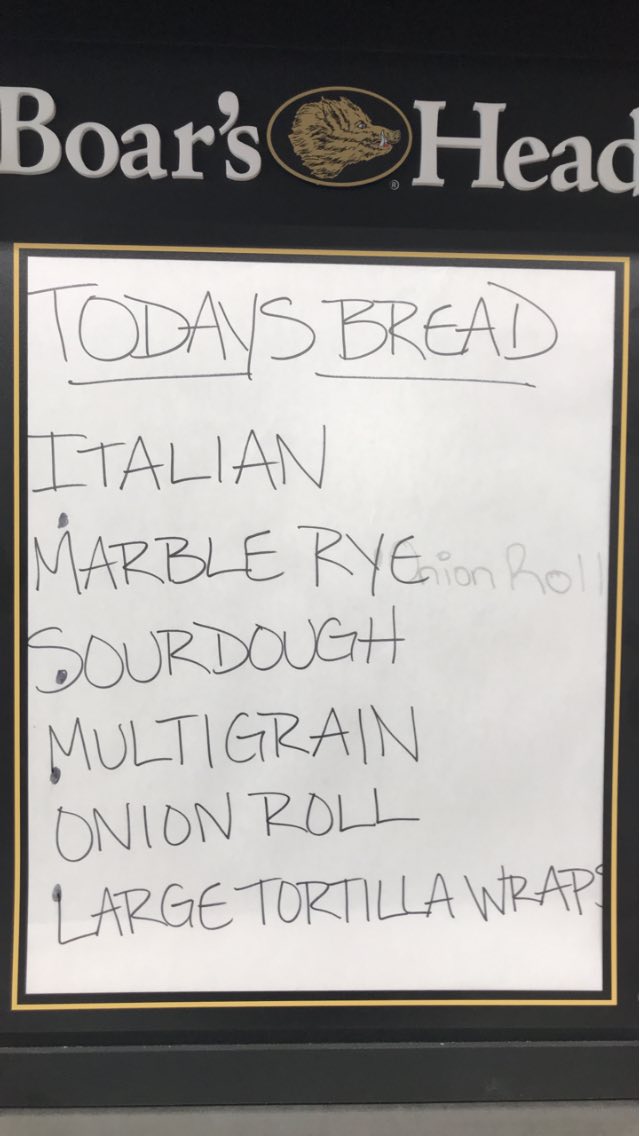 Boar's Head
®
TODAYS BREAD
ITALIAN
MARBLE RYE
Onion Roll
SOURDOUGH
MULTIGRAIN
ONION ROLL
LARGE TORTILLA WRAPS